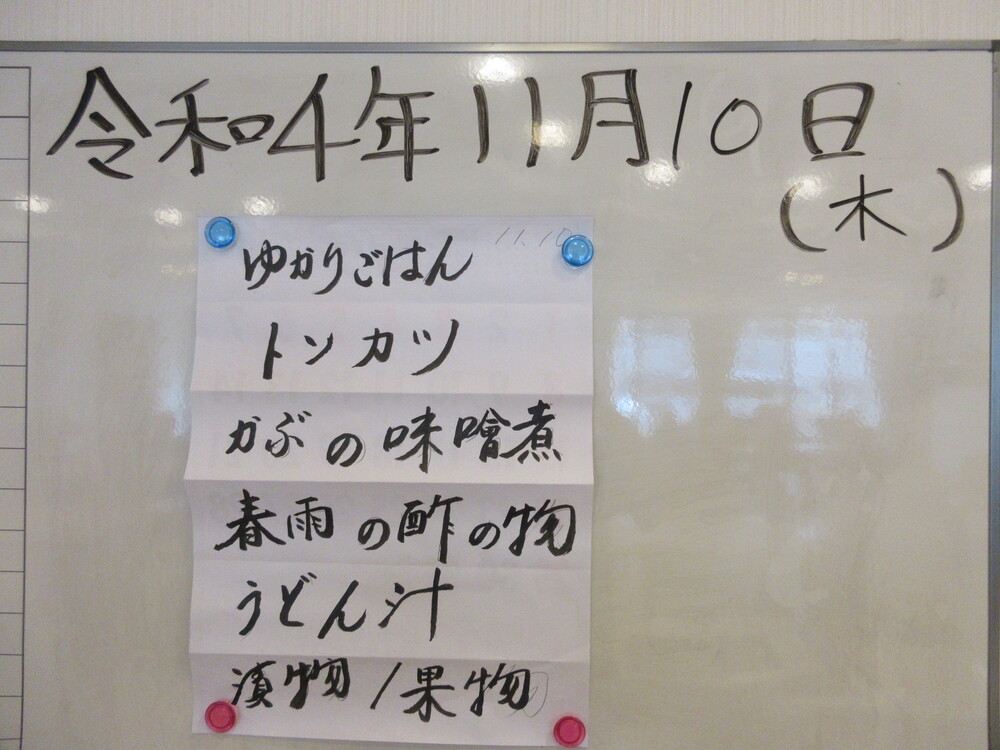 令和4年11月10日
(木)
11.10
ゆかりごはん
トンカツ
かぶの味噌煮
春雨の酢の物
うどん汁
漬物/果物